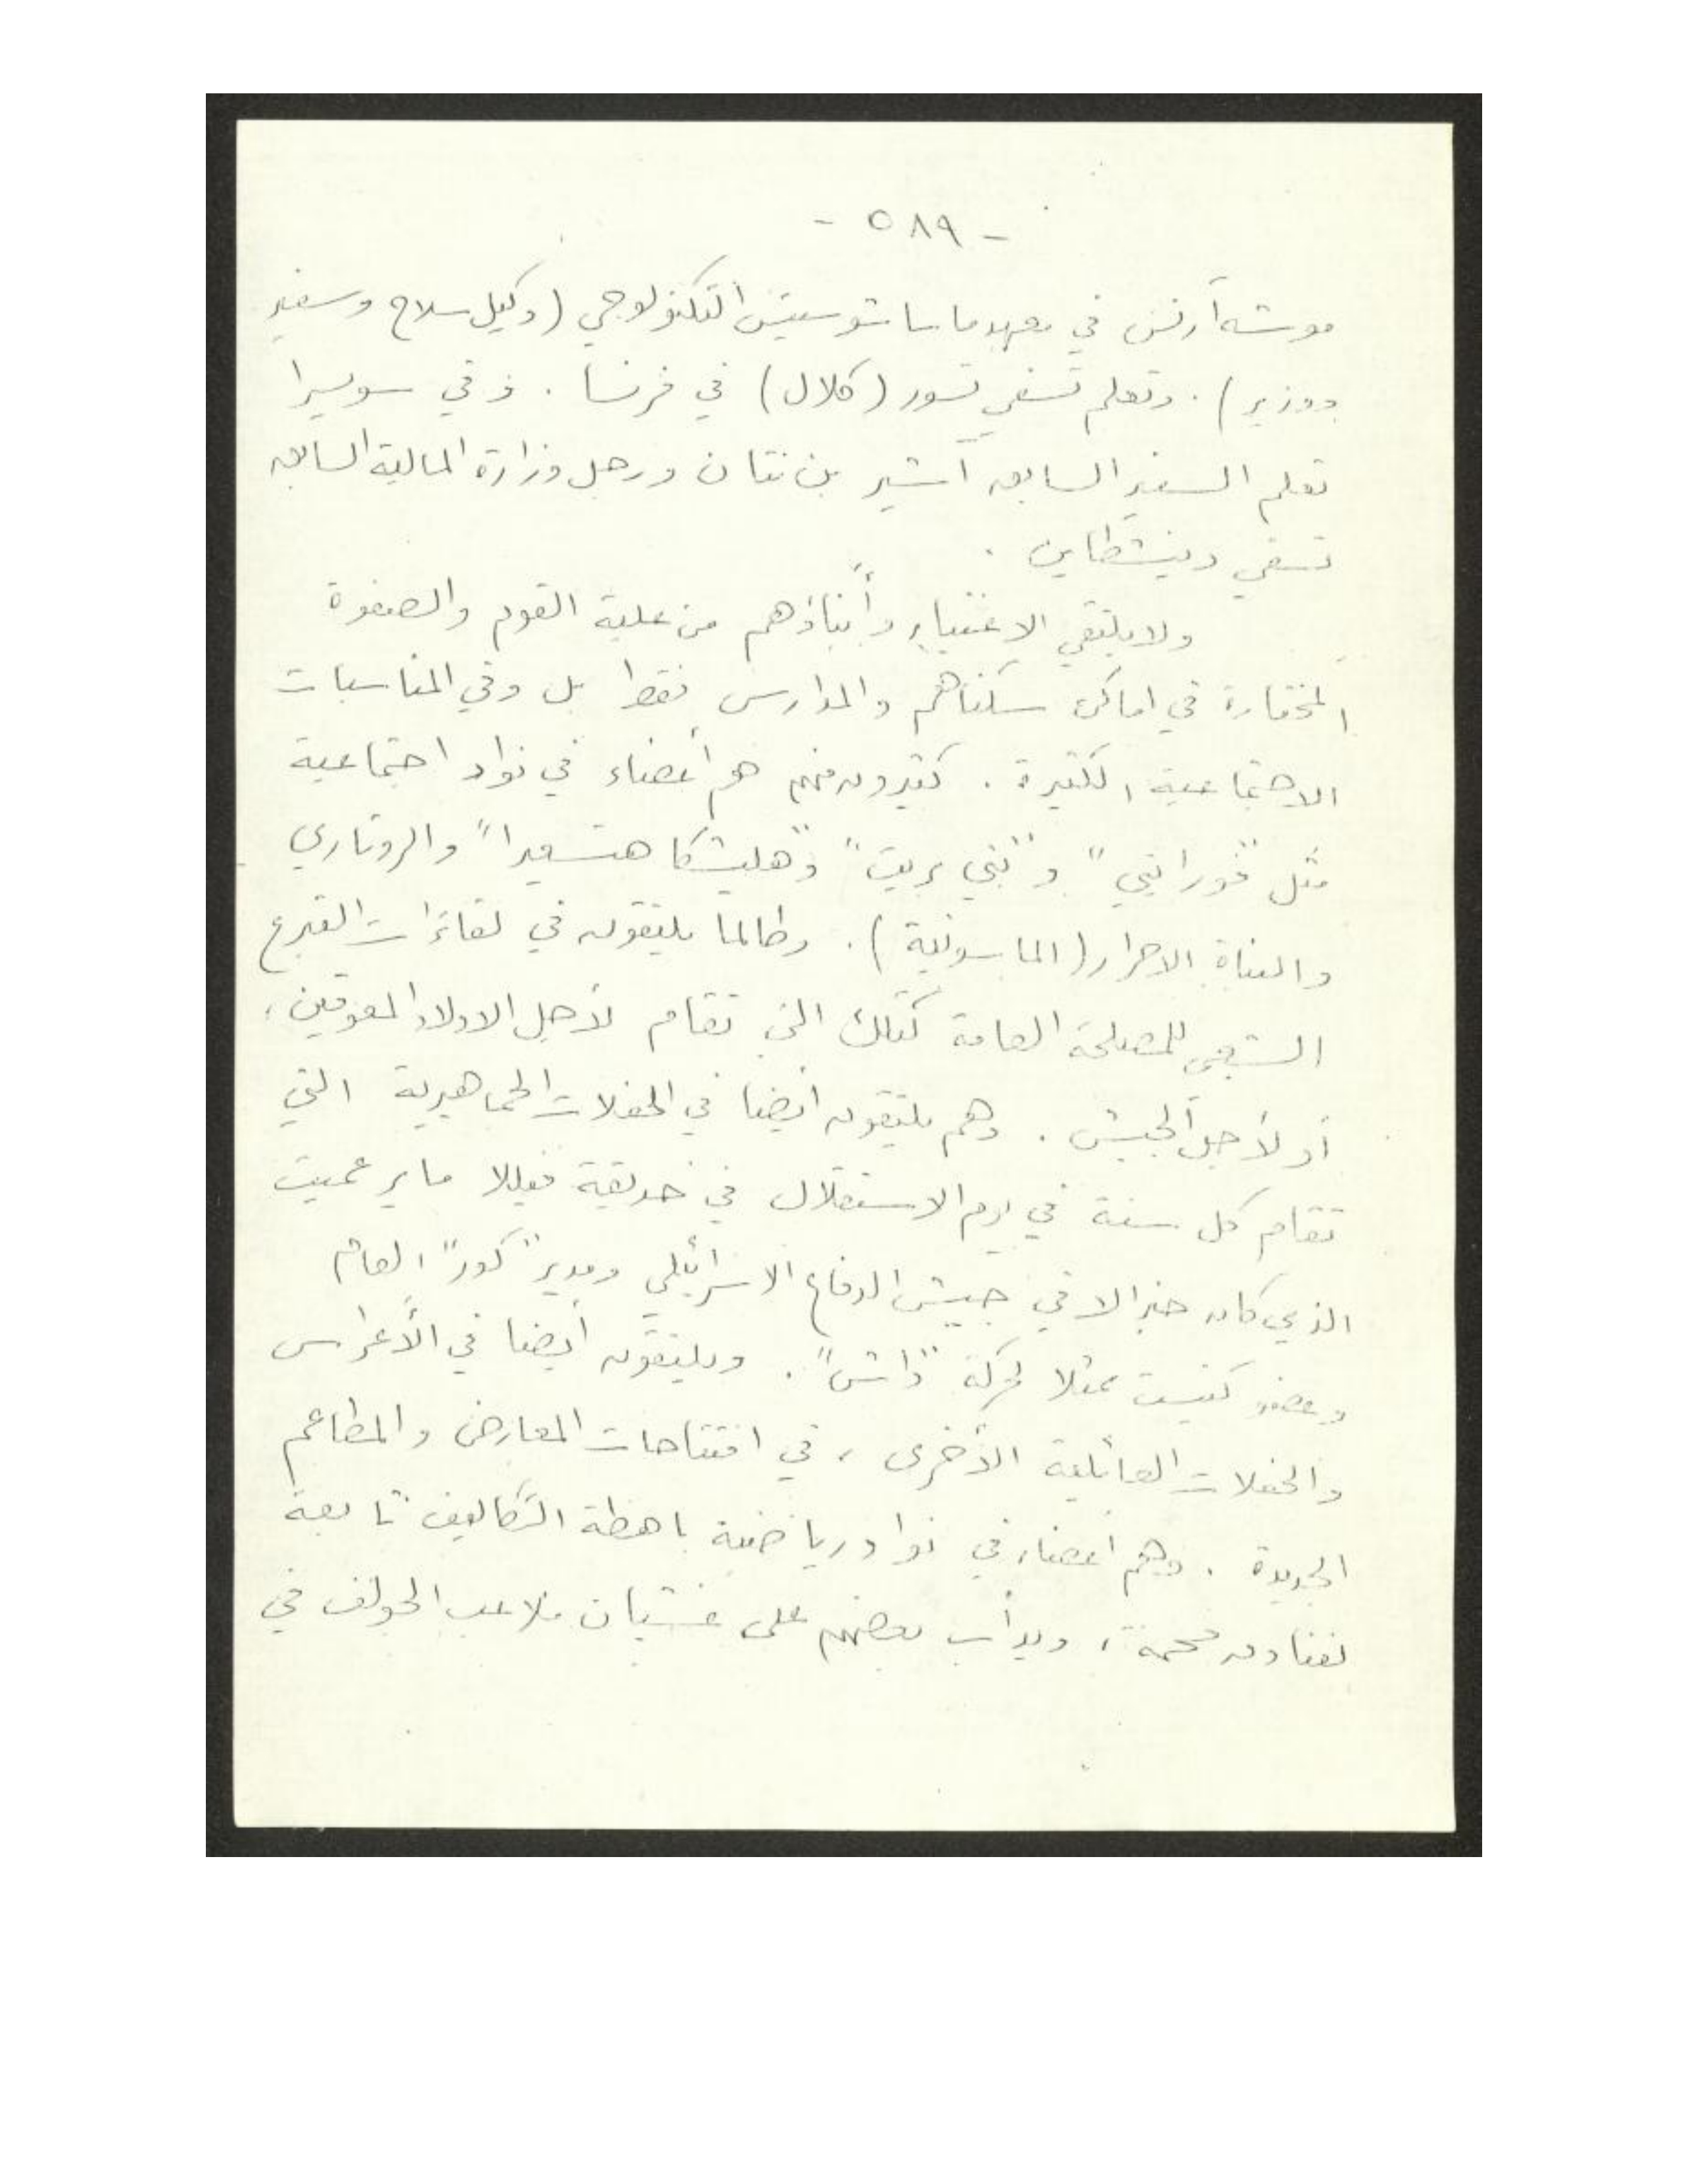 - ٥٨٩ -
موشه آرنس في معهد ماساتشوستس التكنولوجي (وكيل سلاح وسفير
ووزير). وتعلم تسفي تسور (كلال) في فرنسا. وفي سويسرا
تعلم السفير السابق آشير بن نتان ورجل وزارة المالية السابق
تسفي دينشطاين.
ولا يلتقي الاغنياء وأبناؤهم من علية القوم والصفوة
المختارة في اماكن سكناهم والمدارس فقط بل وفي المناسبات
الاجتماعية الكثيرة. كثيرون منهم هم أعضاء في نواد اجتماعية
مثل "" و"بني بريت" و"هليشكا هتسعيرا" والروتاري
والبناة الاحرار (الماسونية). وطالما يلتقون في لقاءات التبرع
الشعبي للمصلحة العامة كتلك التي تقام لأجل الاولاد المعوقين،
أو لأجل الجيش. وهم يلتقون أيضا في الحفلات الجماهيرية التي
تقام كل سنة في يوم الاستقلال في حديقة فيللا ماير عميت
الذي كان جنرالا في جيش الدفاع الاسرائيلي ومدير "كور" العام
وعضو كنيست ممثلا لحركة "داش". ويلتقون أيضا في الأعراس
والحفلات العائلية الأخرى، في افتتاحات المعارض والمطاعم
الجديدة. وهم أعضاء في نواد رياضية باهظة التكاليف تابعة
لفنادق فخمة، ويدأب بعضهم على غشيان ملاعب الجولف في